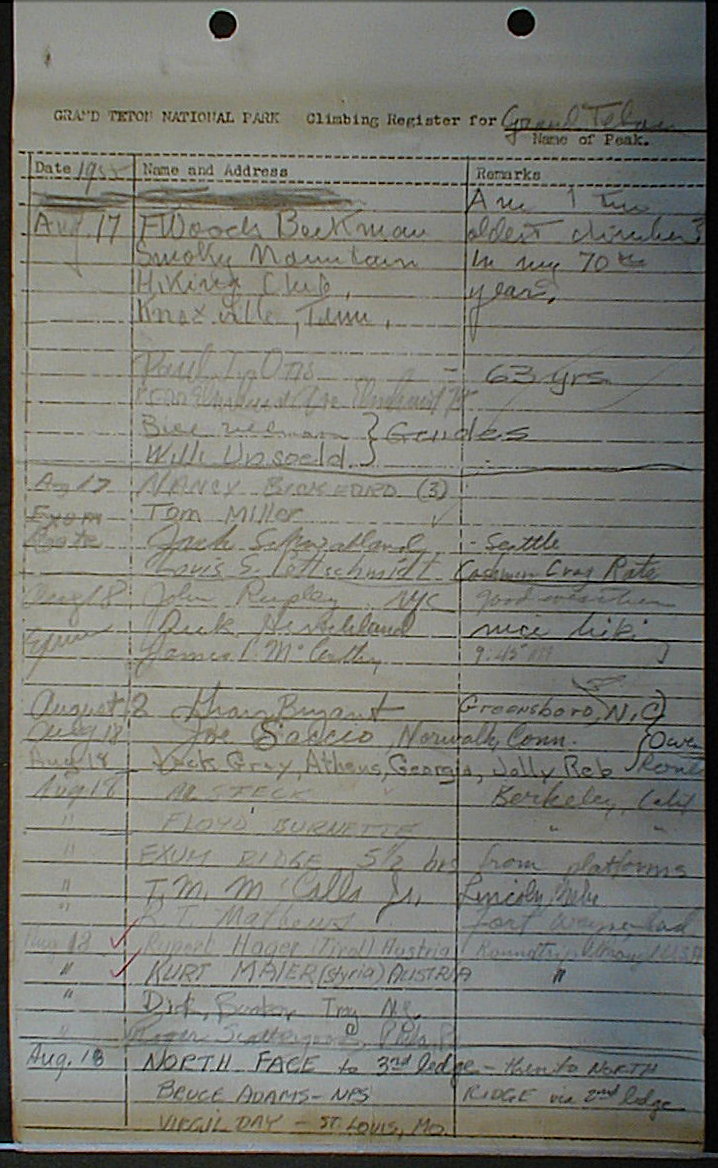 GRAND TETON NATIONAL PARK Climbing Register for Grand Teton
Name of Peak.
Date 1955 Name and Address Remarks
Am I the
Aug. 17 F Woods Beckman oldest climber?
Smoky Mountain In my 70th
Hiking Club, year,
Knoxville, Tenn,
Paul L. Otis 63 yrs
Guides
Willi Unsoeld
Aug 17 NANCY BICKFORD (3)
Exum TOM MILLER
Route Jack Schwabland - Seattle
Louis S. Cashmere Crag Rats
Aug 18 John Rupley NYC good weather
Exum Dick nice hike
James P. McCarthy 9:45
August 18 Bryant Greensboro, N.C.
Aug 18 Joe Saccio, Norwalk, Conn. Owen
Aug 18 Dick Gray, Athens, Georgia, Jolly Reb
Aug 18 AL STECK Berkeley, Calif
" FLOYD BURNETTE " "
" EXUM RIDGE 5 1/2 hrs from platforms
" T. M. McCalla Jr, Lincoln, Nebr
" R. T. Mathews Fort Wayne, Ind
Aug 18 Rupert Hager (Tirol) Austria Roundtrip USA
" KURT MAIER (Styria) AUSTRIA "
" Dirk, Troy N.Y.
" Roger Phila. P
Aug. 18 NORTH FACE to 3rd ledge - then to NORTH
BRUCE ADAMS - NPS RIDGE via 2nd ledge
VIRGIL DAY - ST. LOUIS, MO.